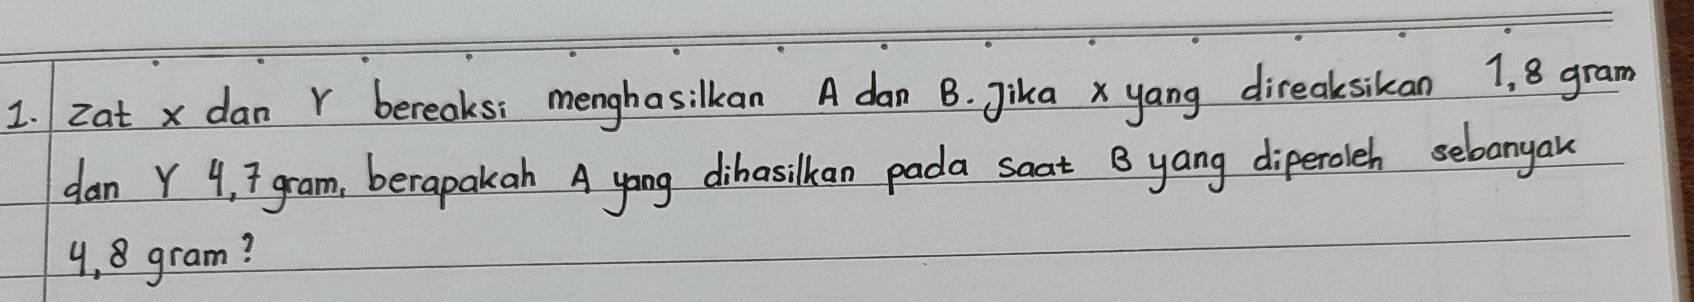 1. Zat x dan Y bereaksi menghasilkan A dan B. Jika x yang direaksikan 1,8 gram
dan Y 4,7 gram, berapakah A yang dihasilkan pada saat B yang diperoleh sebanyak
4,8 gram?